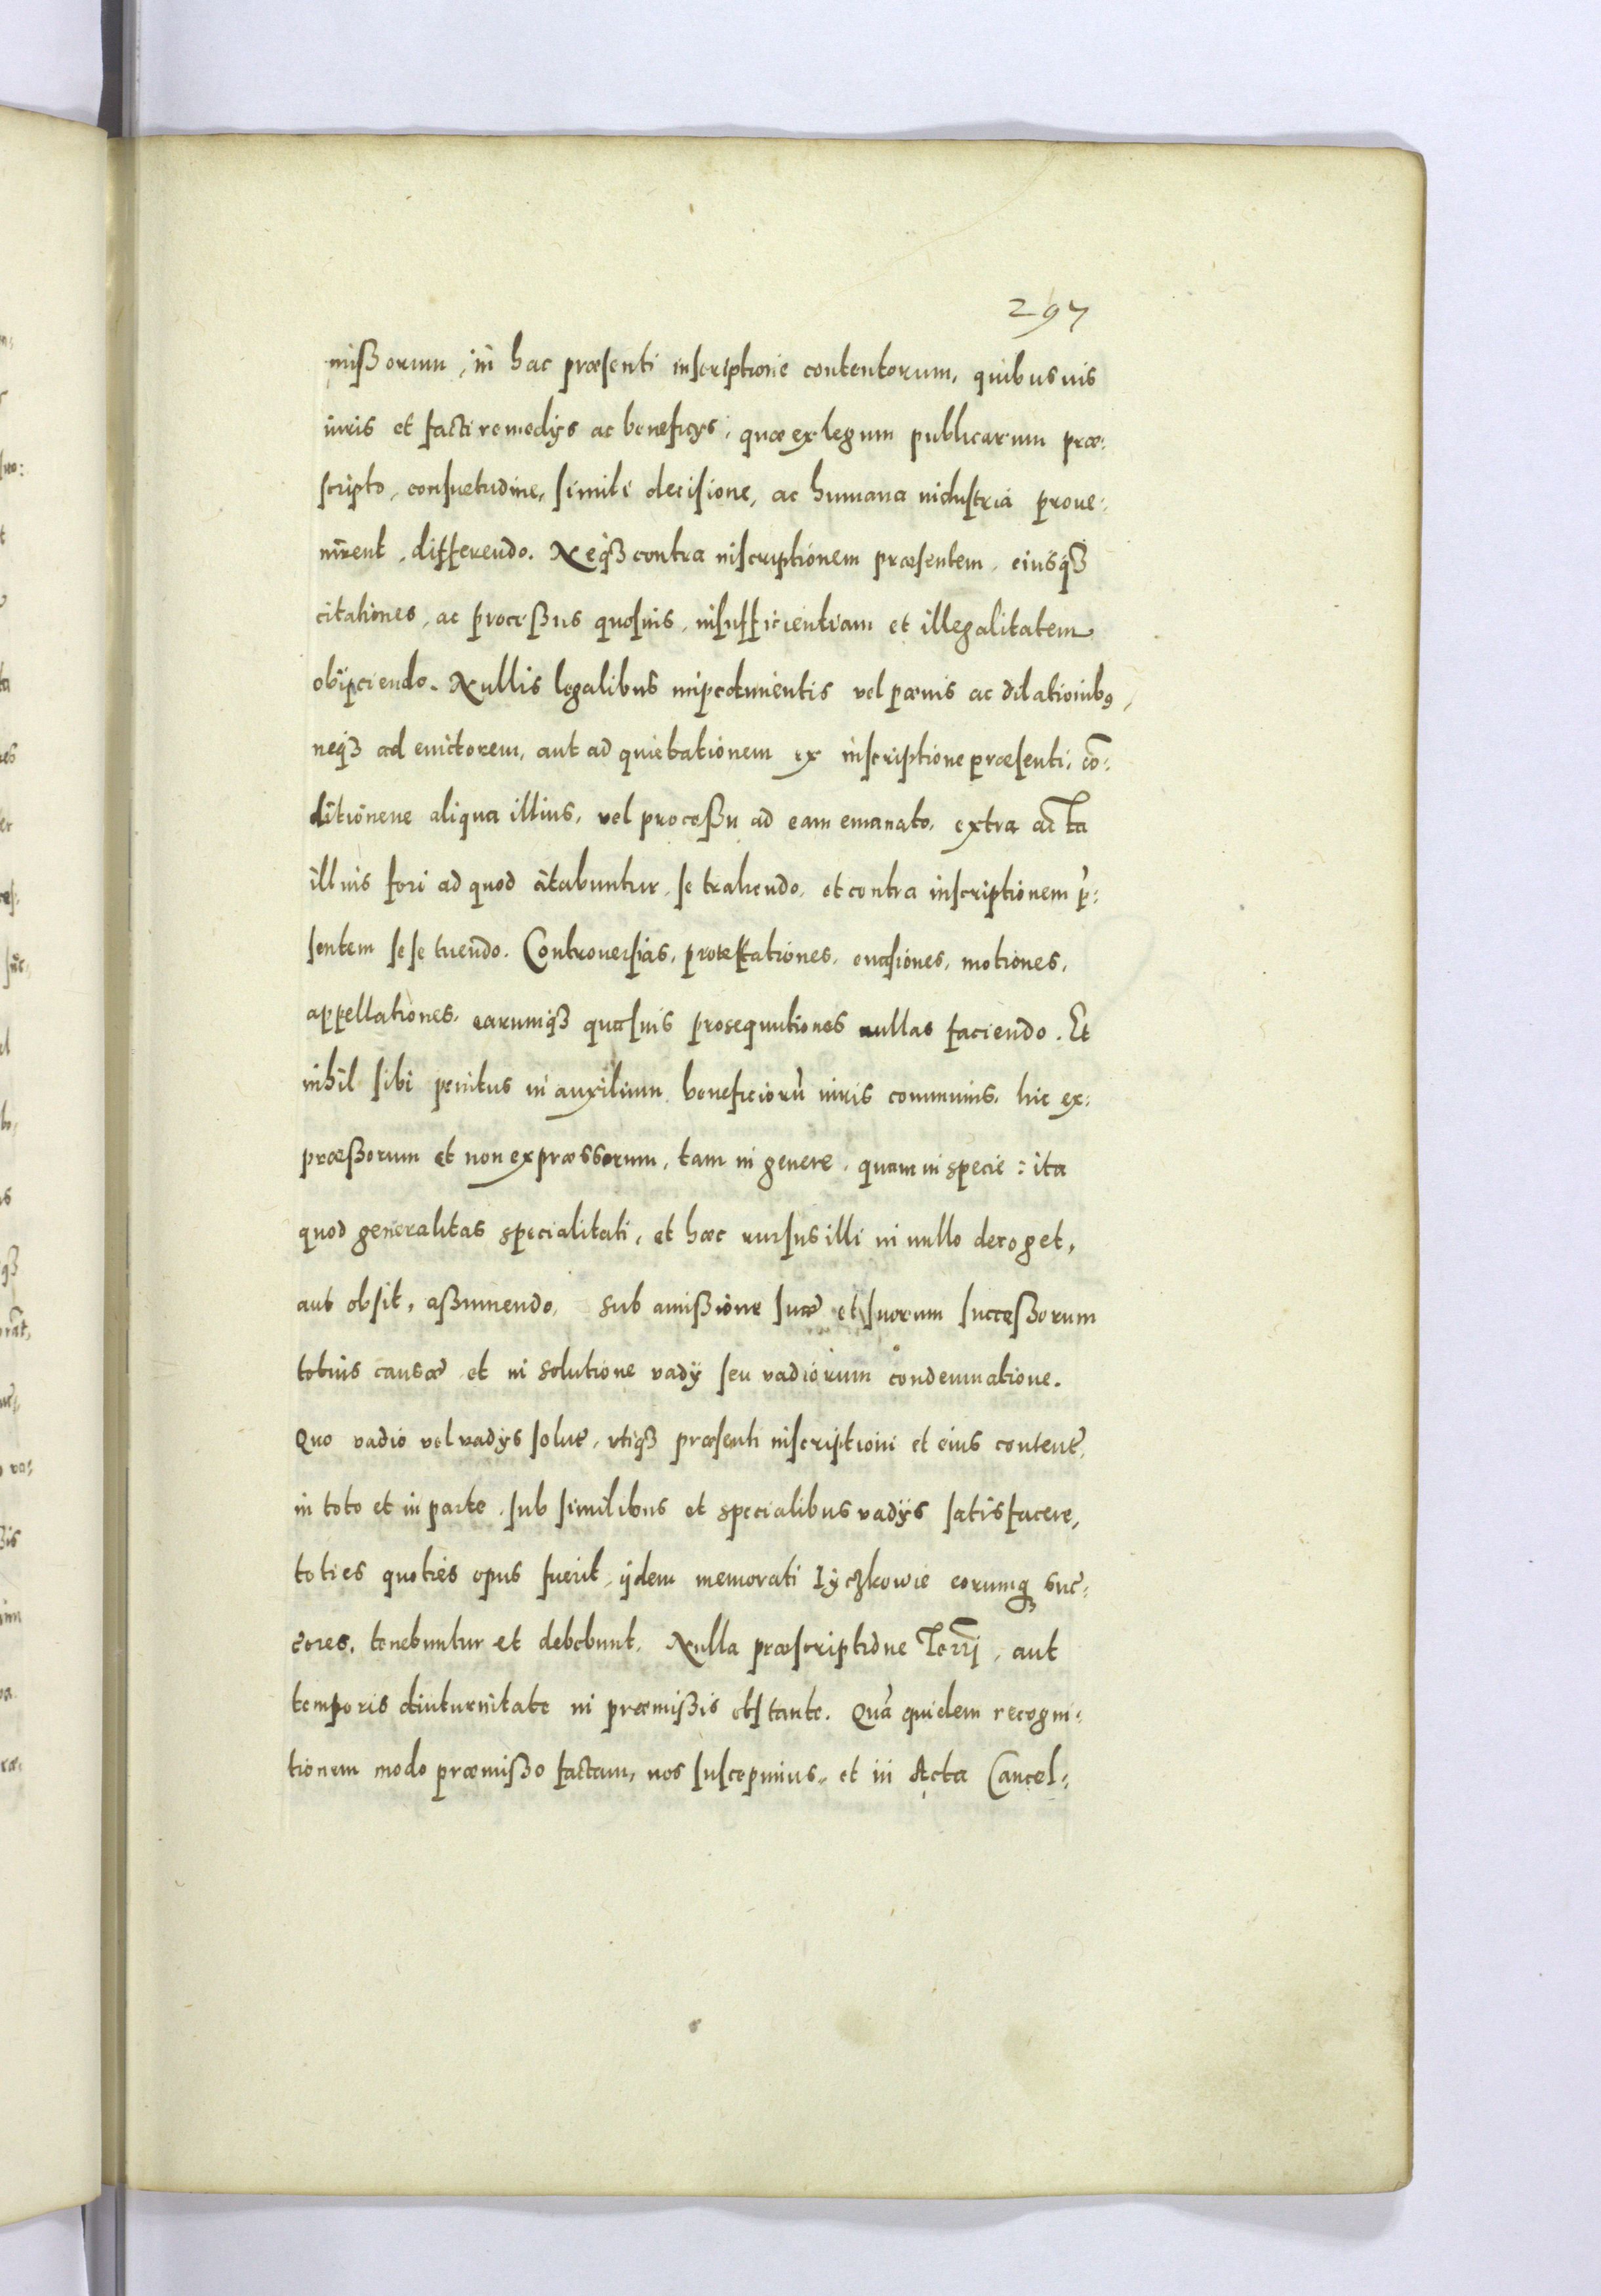 297
mißorum, in hac præsenti inscriptione contentorum, quibusuis
iuris et facti remedijs ac beneficijs, quæ ex legum publicarum præ:
scripto, consuetudine, simili decisione, ac humana industria proue:
nirent, differendo. Neqꝫ contra inscriptionem præsentem, eiusqꝫ
citationes, ac proceßus quosuis, insufficientiam et illegalitatem
obijciendo. Nullis legalibus impedimentis vel pænis ac dilationibꝰ,
neqꝫ ad euictorem, aut ad quietationem ex inscriptione præsenti, cō:
ditioneue aliqua illius, vel proceßu ad eam emanato, extra acta
illuis fori ad quod citabuntur, se trahendo, et contra inscriptionem p̄:
sentem sese tuendo. Controuersias, protestationes, euasiones, motiones,
appellationes, earumqꝫ quasuis prosequutiones nullas faciendo. Et
nihil sibi penitus in auxilium beneficiorū iuris communis, hic ex:
præßorum et non expræssorum, tam in genere, quam in specie: ita
quod generalitas specialitati, et hæc rursus illi in nullo deroget,
aut obsit, aßumendo, sub amißione suæ et suorum succeßorum
totius causæ et in solutione vadij seu vadiorum condemnatione.
Quo vadio vel vadijs solut̄, vtiqꝫ præsenti inscriptioni et eius content̄,
in toto et in parte, sub similibus et specialibus vadijs satisfacere,
toties quoties opus fuerit, ijdem memorati Iyczkowie eorumqꝫ suc̄:
c̄ores, tenebuntur et debebunt. Nulla præscriptione Terrī, aut
temporis diuturnitate in præmißis obstante. Quā quidem recogni:
tionem modo præmißo factam, nos suscepimus, et in Acta Cancel: